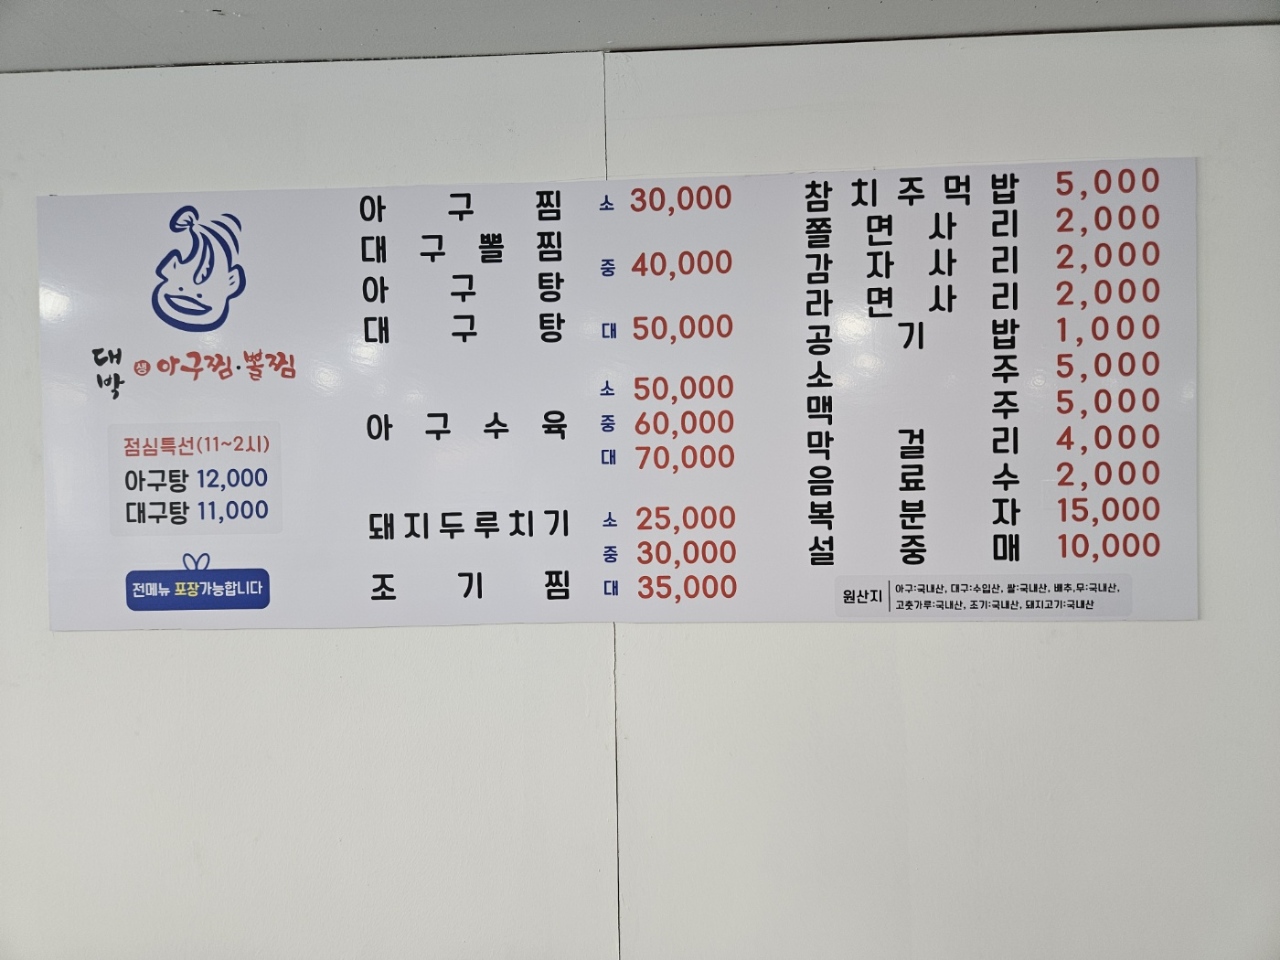 대박 생 아구찜·뽈찜
점심특선(11~2시)
아구탕 12,000
대구탕 11,000
전메뉴 포장가능합니다
아구찜
대구뽈찜
아구탕
대구탕
소 30,000
중 40,000
대 50,000
아구수육
소 50,000
중 60,000
대 70,000
돼지두루치기
조기찜
소 25,000
중 30,000
대 35,000
참치주먹밥 5,000
쫄면사리 2,000
감자사리 2,000
라면사리 2,000
공기밥 1,000
소주 5,000
맥주 5,000
막걸리 4,000
음료수 2,000
복분자 15,000
설중매 10,000
원산지
아구:국내산, 대구:수입산, 쌀:국내산, 배추,무:국내산,
고춧가루:국내산, 조기:국내산, 돼지고기:국내산